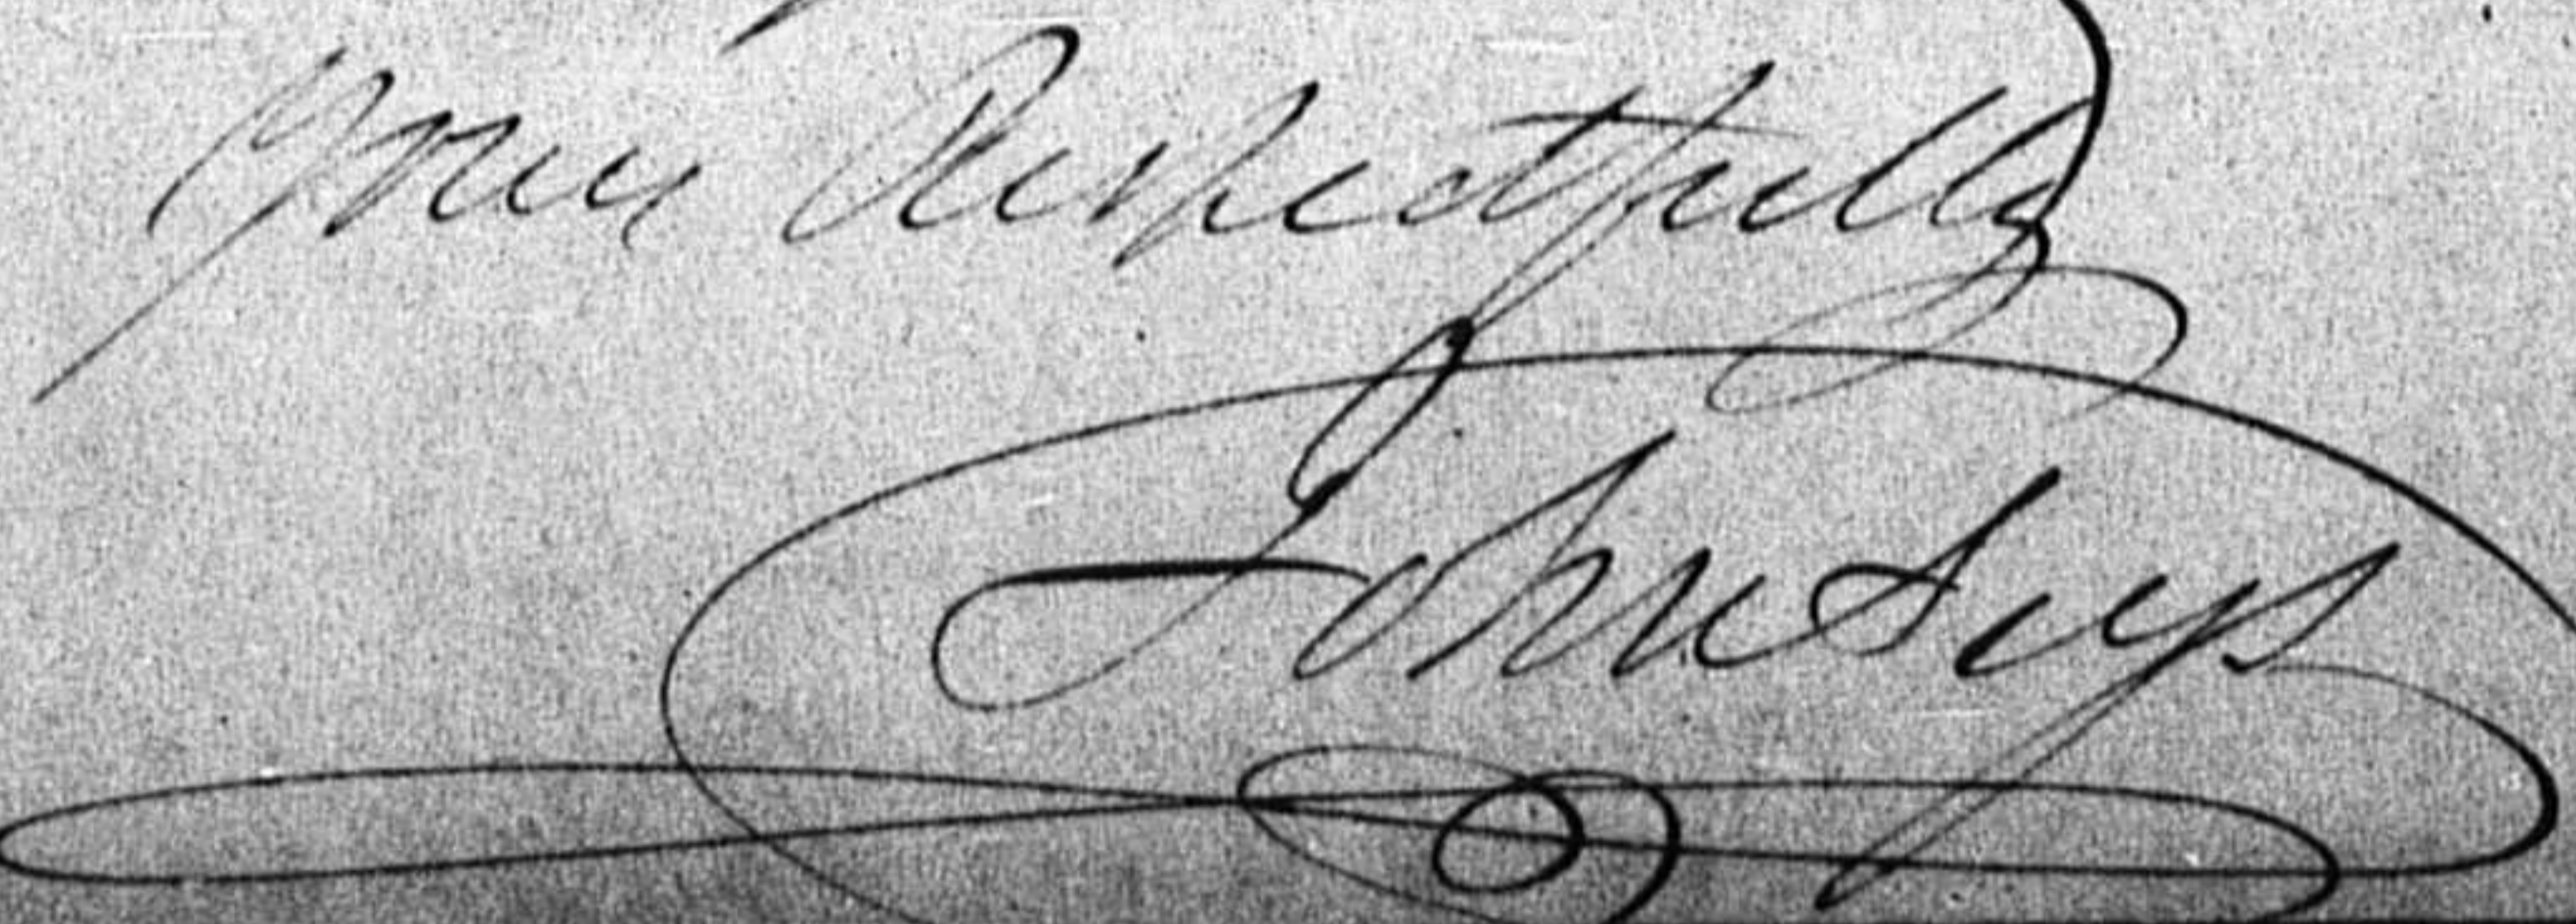 Yours Respectfully
John Seys